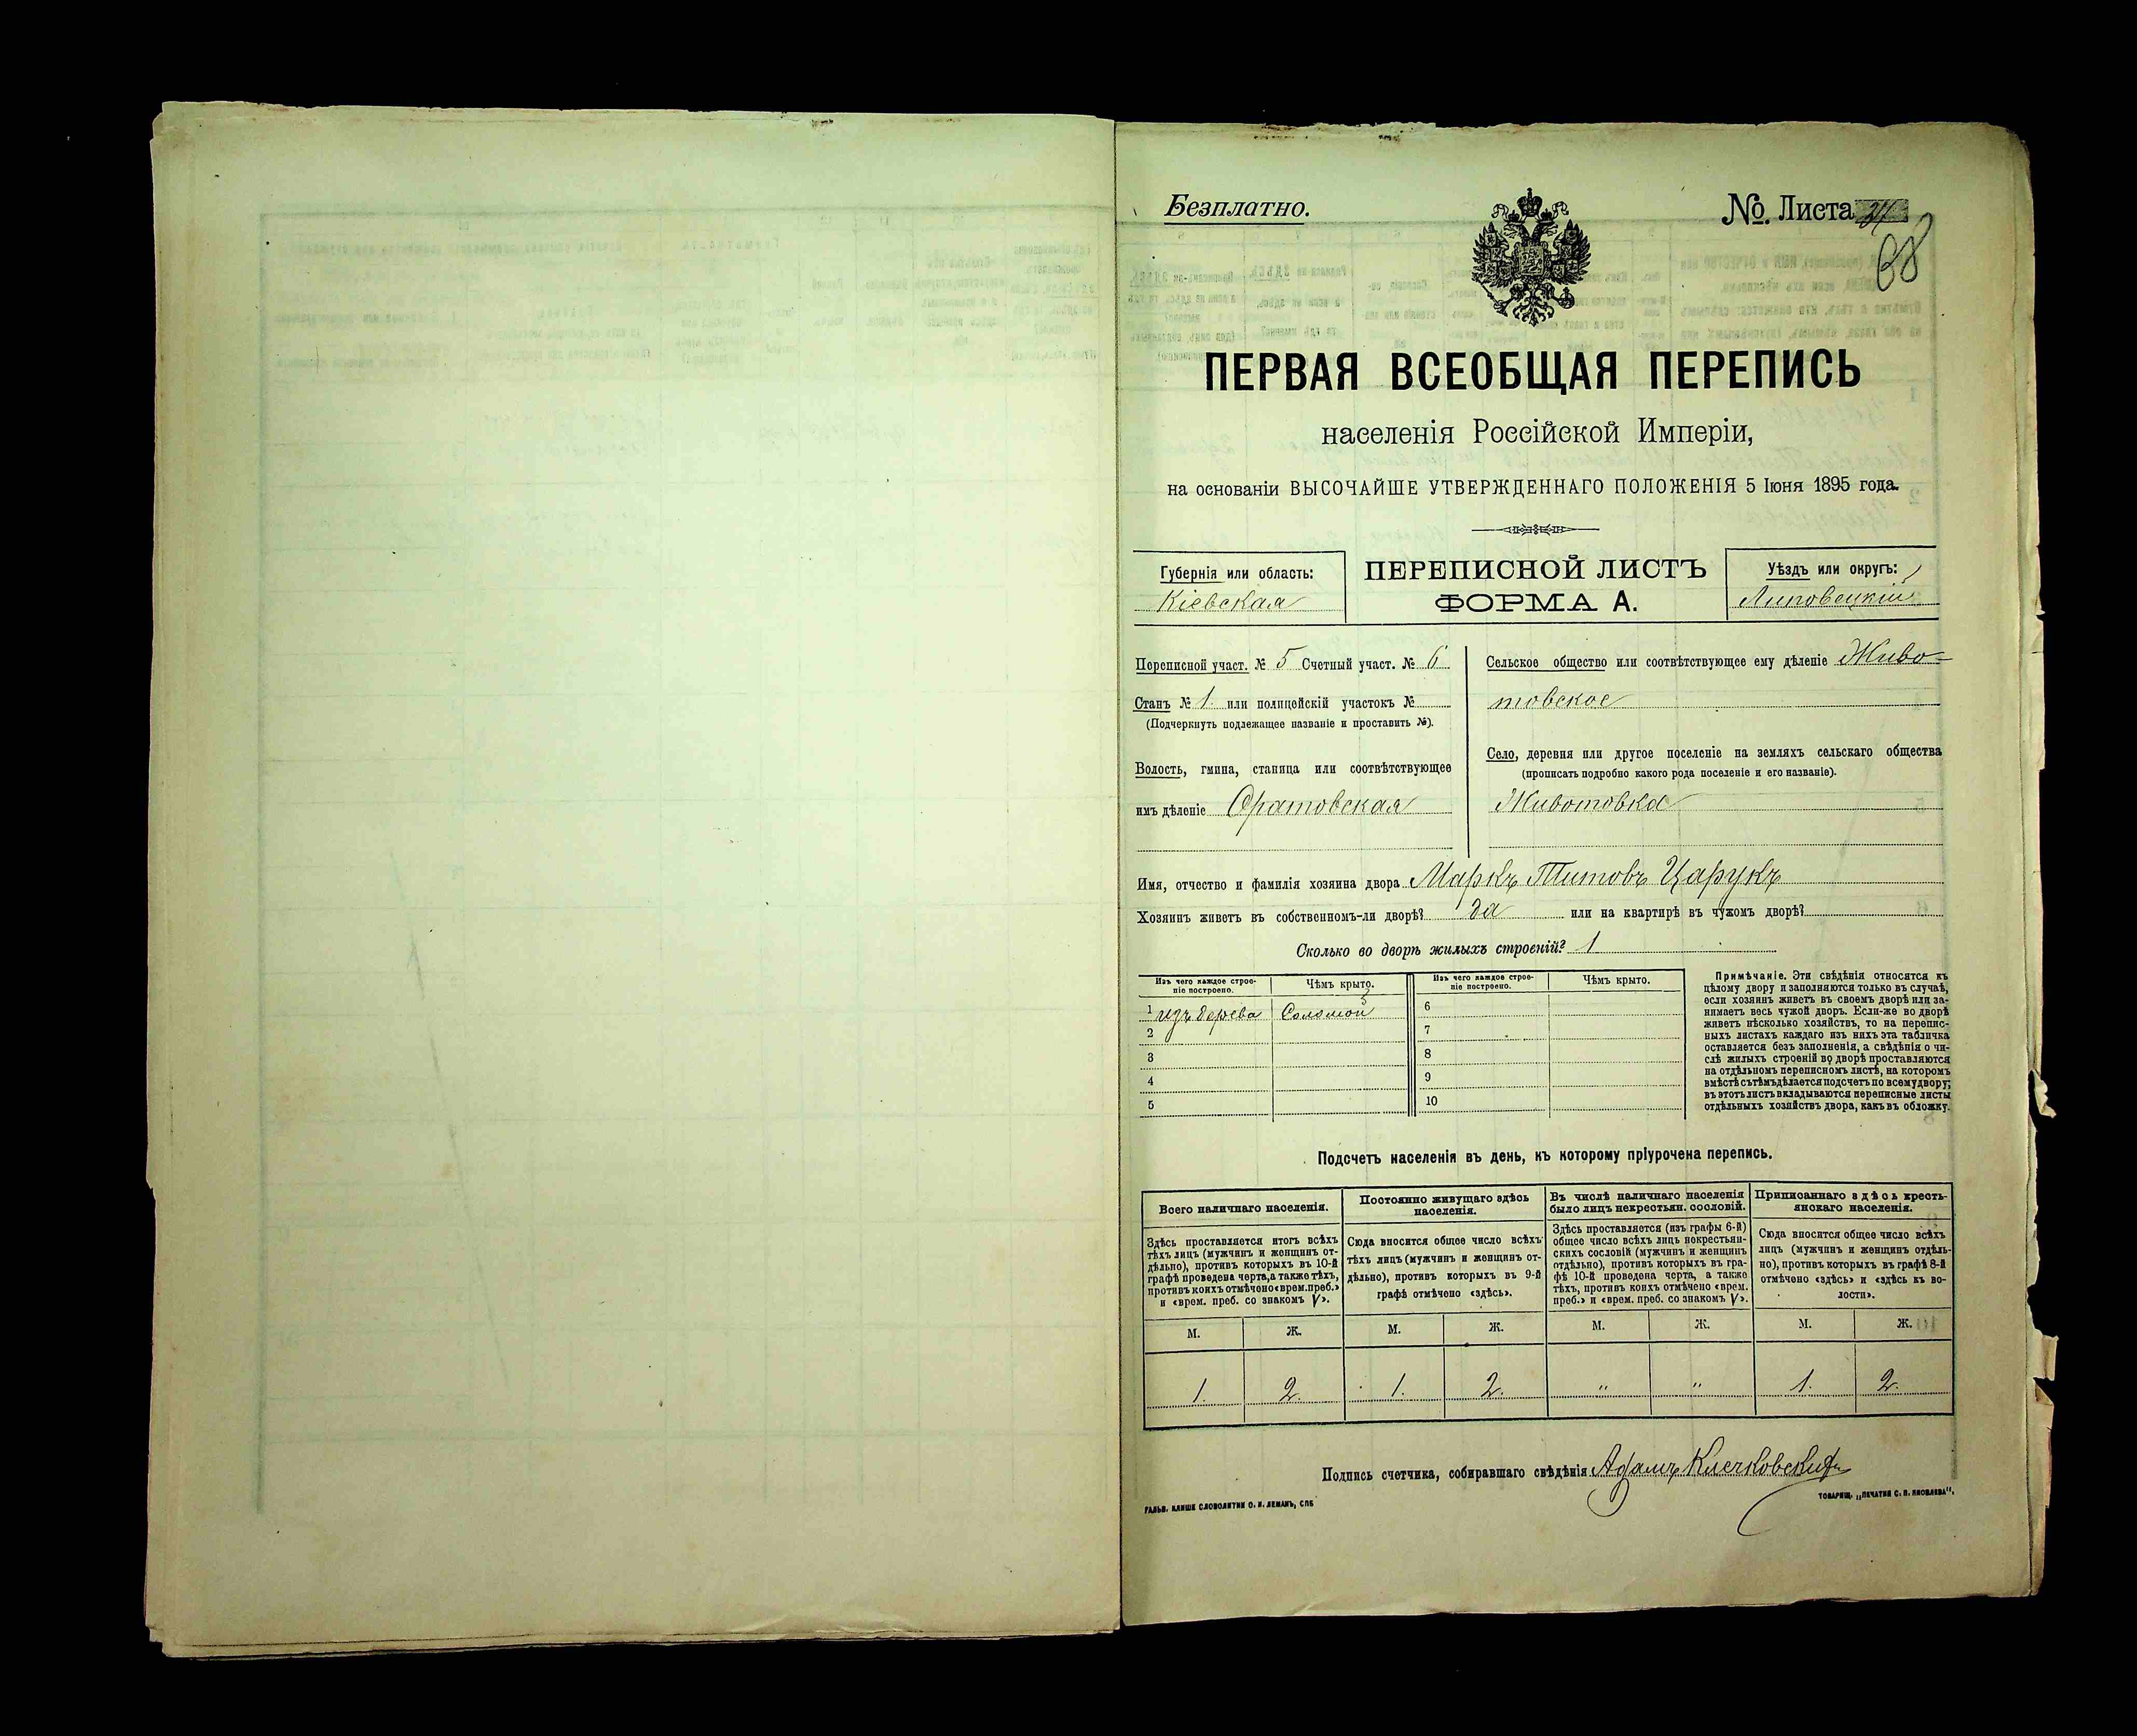 Безплатно.
№ Листа
68
ПЕРВАЯ ВСЕОБЩАЯ ПЕРЕПИСЬ
населенія Россійской Имперіи,
на основаніи ВЫСОЧАЙШЕ УТВЕРЖДЕННАГО ПОЛОЖЕНІЯ 5 Іюня 1895 года.
Губернія или область:
Кіевская
ПЕРЕПИСНОЙ ЛИСТЪ
ФОРМА А.
Уѣздъ или округъ:
Липовецкій
Переписной участ. № 5 Счетный участ. № 6
Станъ № 1. или полицейскій участокъ №
(Подчеркнуть подлежащее названіе и проставить №).
Волость, гмина, станица или соотвѣтствующее
имъ дѣленіе Оратовская
Сельское общество или соотвѣтствующее ему дѣленіе Живо-
товское
Село, деревня или другое поселеніе на земляхъ сельскаго общества
(прописать подробно какого рода поселеніе и его названіе).
Животовка
Имя, отчество и фамилія хозяина двора Маркъ Титовъ Царукъ
Хозяинъ живетъ въ собственномъ-ли дворѣ? да или на квартирѣ въ чужомъ дворѣ?
Сколько во дворѣ жилыхъ строеній? 1
Изъ чего каждое строе-
ніе построено.
Чѣмъ крыто.
1 изъ дерева Соломой
2
3
4
5
Изъ чего каждое строе-
ніе построено.
Чѣмъ крыто.
6
7
8
9
10
Примѣчаніе. Эти свѣдѣнія относятся къ
цѣлому двору и заполняются только въ случаѣ,
если хозяинъ живетъ въ своемъ дворѣ или за-
нимаетъ весь чужой дворъ. Если-же во дворѣ
живетъ нѣсколько хозяйствъ, то на перепис-
ныхъ листахъ каждаго изъ нихъ эта табличка
оставляется безъ заполненія, а свѣдѣнія о чи-
слѣ жилыхъ строеній во дворѣ проставляются
на отдѣльномъ переписномъ листѣ, на которомъ
вмѣстѣ съ тѣмъ дѣлается подсчетъ по всему двору;
въ этотъ листъ вкладываются переписные листы
отдѣльныхъ хозяйствъ двора, какъ въ обложку.
Подсчетъ населенія въ день, къ которому пріурочена перепись.
Всего наличнаго населенія.
Здѣсь проставляется итогъ всѣхъ
тѣхъ лицъ (мужчинъ и женщинъ от-
дѣльно), противъ которыхъ въ 10-й
графѣ проведена черта, а также тѣхъ,
противъ коихъ отмѣчено «врем. преб.»
и «врем. преб. со знакомъ V».
М. Ж.
1. 2.
Постоянно живущаго здѣсь
населенія.
Сюда вносится общее число всѣхъ
тѣхъ лицъ (мужчинъ и женщинъ от-
дѣльно), противъ которыхъ въ 9-й
графѣ отмѣчено «здѣсь».
М. Ж.
1. 2.
Въ числѣ наличнаго населенія
было лицъ некрестьян. сословій.
Здѣсь проставляется (изъ графы 6-й)
общее число всѣхъ лицъ некрестьян-
скихъ сословій (мужчинъ и женщинъ
отдѣльно), противъ которыхъ въ гра-
фѣ 10-й проведена черта, а также
тѣхъ, противъ коихъ отмѣчено «врем.
преб.» и «врем. преб. со знакомъ V».
М. Ж.
" "
Приписаннаго здѣсь кресть-
янскаго населенія.
Сюда вносится общее число всѣхъ
лицъ (мужчинъ и женщинъ отдѣль-
но), противъ которыхъ въ графѣ 8-й
отмѣчено «здѣсь» и «здѣсь къ во-
лости».
М. Ж.
1. 2.
Подпись счетчика, собиравшаго свѣдѣнія Адамъ
ГАЛЬВ. КЛИШЕ СЛОВОЛИТНИ О. И. ЛЕМАНЪ, СПБ
ТОВАРИЩ. „ПЕЧАТНЯ С. П. ЯКОВЛЕВА".